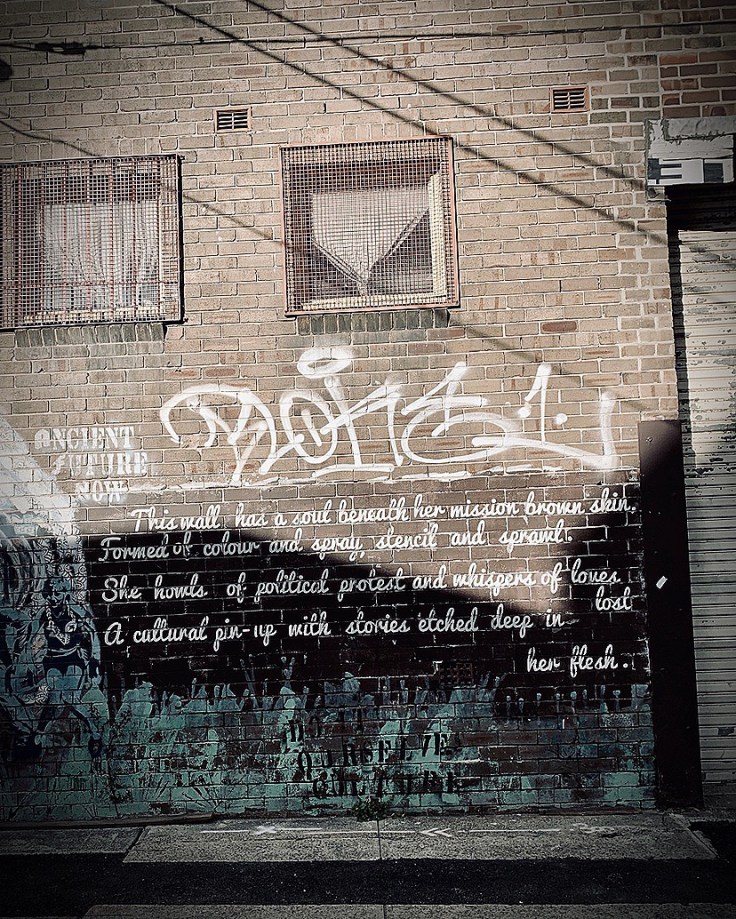 ANCIENT
FUTURE
NOW
This wall has a soul beneath her mission brown skin.
Formed of colour and spray, stencil and sprawl.
She howls of political protest and whispers of loves
lost
A cultural pin-up with stories etched deep in
her flesh.
DO IT
OURSELVES
CULTURE